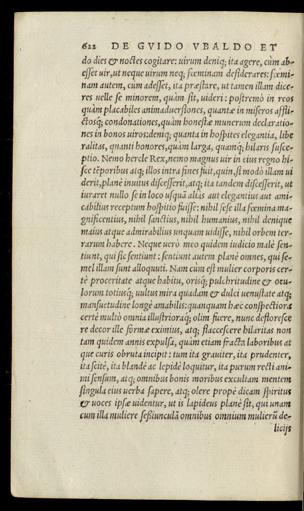 622 DE GVIDO VBALDO ET
do dies & noctes cogitare: uirum deniq; ita agere, cùm ab-
esset uir, ut neque uirum neq; fœminam desiderares: fœmi-
nam autem, cum adesset, ita præstare, ut tamen illam dice-
res uelle se minorem, quàm sit, uideri: postremò in reos
quàm placabiles animaduersiones, quantæ in miseros affli-
ctosq; condonationes, quàm honestæ munerum declaratio-
nes in bonos uiros: deniq; quanta in hospites elegantia, libe
ralitas, quanti honores, quàm larga, quamq; hilaris susce-
ptio. Nemo hercle Rex, nemo magnus uir in eius regno hi-
sce tēporibus atq; illos intra fines fuit, quin, si modò illam ui
derit, planè inuitus discesserit, atq; ita tandem discesserit, ut
iuraret nullo se in loco usquā alias aut elegantius aut ami-
cabilius receptum hospitio fuisse: nihil sese illa fœmina ma-
gnificentius, nihil sanctius, nihil humanius, nihil denique
maius atque admirabilius unquam uidisse, nihil orbem ter-
rarum habere. Neque uerò meo quidem iudicio malè sen-
tiunt, qui sic sentiunt: sentiunt autem planè omnes, qui se-
mel illam sunt alloquuti. Nam cùm est mulier corporis cer-
tè proceritate atque habitu, orisq; pulchritudine & ocu-
lorum totiusq; uultus mira quadam & dulci uenustate atq;
mansuetudine longè amabilis: quanquam hæc conspectiora
certè multò omnia illustrioraq; olim fuere, nunc deflorescē
re decor ille formæ eximius, atq; flaccescere hilaritas non
tam quidem annis expulsa, quàm etiam fracta laboribus at
que curis obruta incipit: tum ita grauiter, ita prudenter,
ita scitè, ita blandè ac lepidè loquitur, ita purum recti ani-
mi sensum, atq; omnibus bonis moribus excultam mentem
singula eius uerba sapere, atq; olere propè dicam spiritus
& uoces ipsæ uidentur, ut is lapideus planè sit, qui unam
cum illa muliere sessiunculā omnibus omnium mulierū de-
licijs